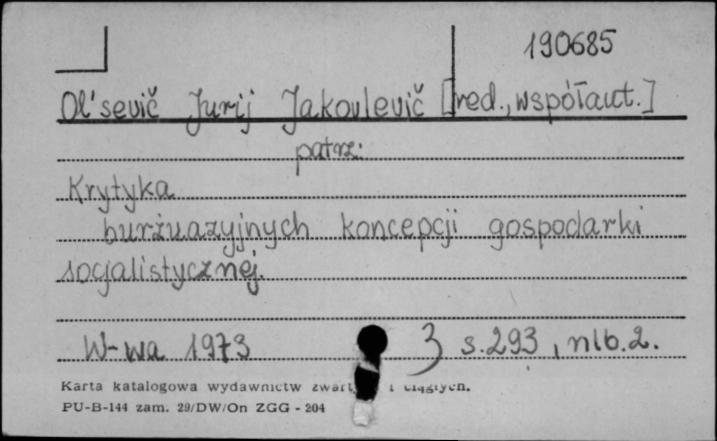 190685
Ol'sevič Jurij Jakovlevič [red., współaut.]
patrz:
Krytyka
burżuazyjnych koncepcji gospodarki
socjalistycznej.
W-wa 1973 3 s. 293, nlb. 2.
Karta katalogowa wydawnictw zwartych i ciągłych.
PU-B-144 zam. 29/DW/On ZGG - 204